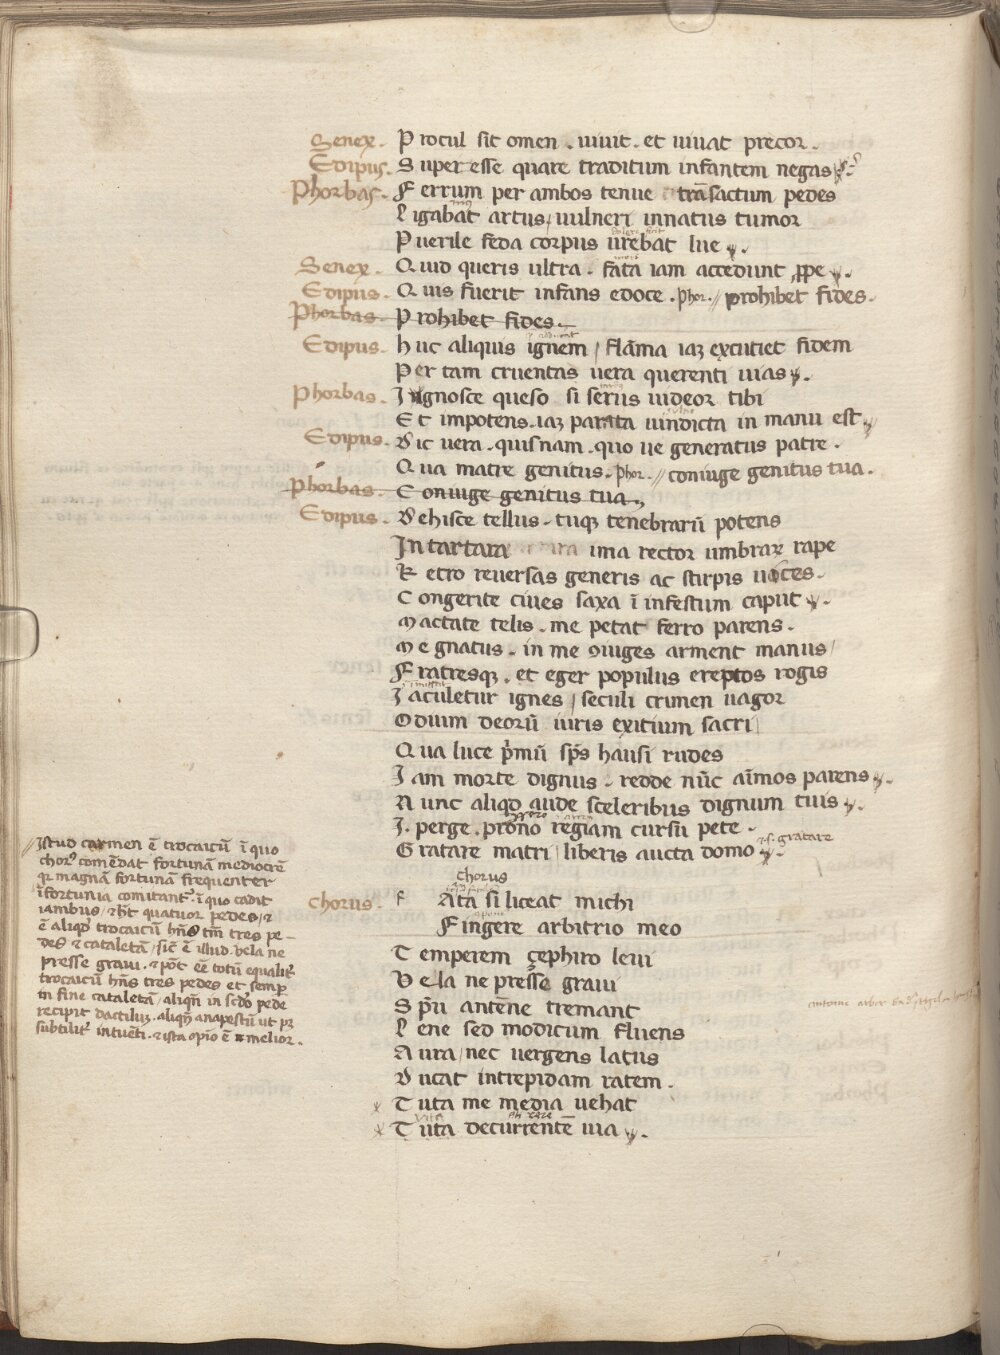 Senex. Procul sit omen. uiuit. et uiuat precor.
Edipus. Super esse quare traditum infantem negas
Phorbas. Ferrum per ambos tenue trāsactum pedes
Ligabat artus, uulneri innatus tumor
Puerile feda corpus urebat lue.
Senex. Quid queris ultra. fata iam accedunt ꝓpe.
Edipus. Quis fuerit infans edoce. Phor. // prohibet fides.
Phorbas. Prohibet fides.
Edipus. huc aliquis ignem / flāma iaꝫ excutiet fidem
Per tam cruentas uera querenti uias.
Phorbas. Ignosce queso si serus uideor tibi
Et impotens. iaꝫ parata uindicta in manu est.
Edipus. Dic uera. quisnam. quo ue generatus patre.
Qua matre genitus. Phor. // coniuge genitus tua.
Phorbas. Coniuge genitus tua.
Edipus. Dehisce tellus. tuqꝫ tenebrarū potens
In tartara ima rector umbraꝝ rape
Retro reuersas generis ac stirpis uices.
Congerite ciues saxa ī infestum caput.
Mactate telis. me petat ferro parens.
Me gnatus. in me ꝯiuges arment manus/
Fratresqꝫ. et eger populus ereptos rogis
Iaculetur ignes / seculi crimen uagor
Odium deorū iuris exitium sacri/
Qua luce p̄mū sp̄s hausi rudes
Iam morte dignus. redde nūc aīmos parens.
Nunc aliqd aude sceleribus dignum tuis.
I. perge. prono regiam cursū pete.
s. gratare
Gratare matri liberis aucta domo.
chorus
Chorus. f Ata si liceat michi
Fingere arbitrio meo
Temperem çephiro leui
Vela ne presse graui
Sp̄u antēne tremant
Lene sed modicum fluens
Aura / nec uergens latus
Ducat intrepidam ratem.
Tuta me media uehat
Vita
Tuta decurrentē uia.
//Istud carmen ē trocaicū ī quo
chorꝰ comēdat fortunā mediocrē
qꝛ magnā fortunā frequenter
īfortunia comitant᷑. ī quo cadit
iambus / ⁊ hȝt quatuor pedes / ⁊
ē aliqd trocaicū hn̄s tm̄ tres pe-
des ⁊ cataletā / sic ē illud. vela ne
presse graui. ⁊ pōt eē totū equalit᷑
trocaicū hn̄s tres pedes et semꝑ
in fine cataletā / aliqn̄ in scd̄o pede
recipit dactiluꝫ. aliqn̄ anapestū ut pꝫ
subtilit᷑ intuēti. ⁊ ista opīo ē melior.